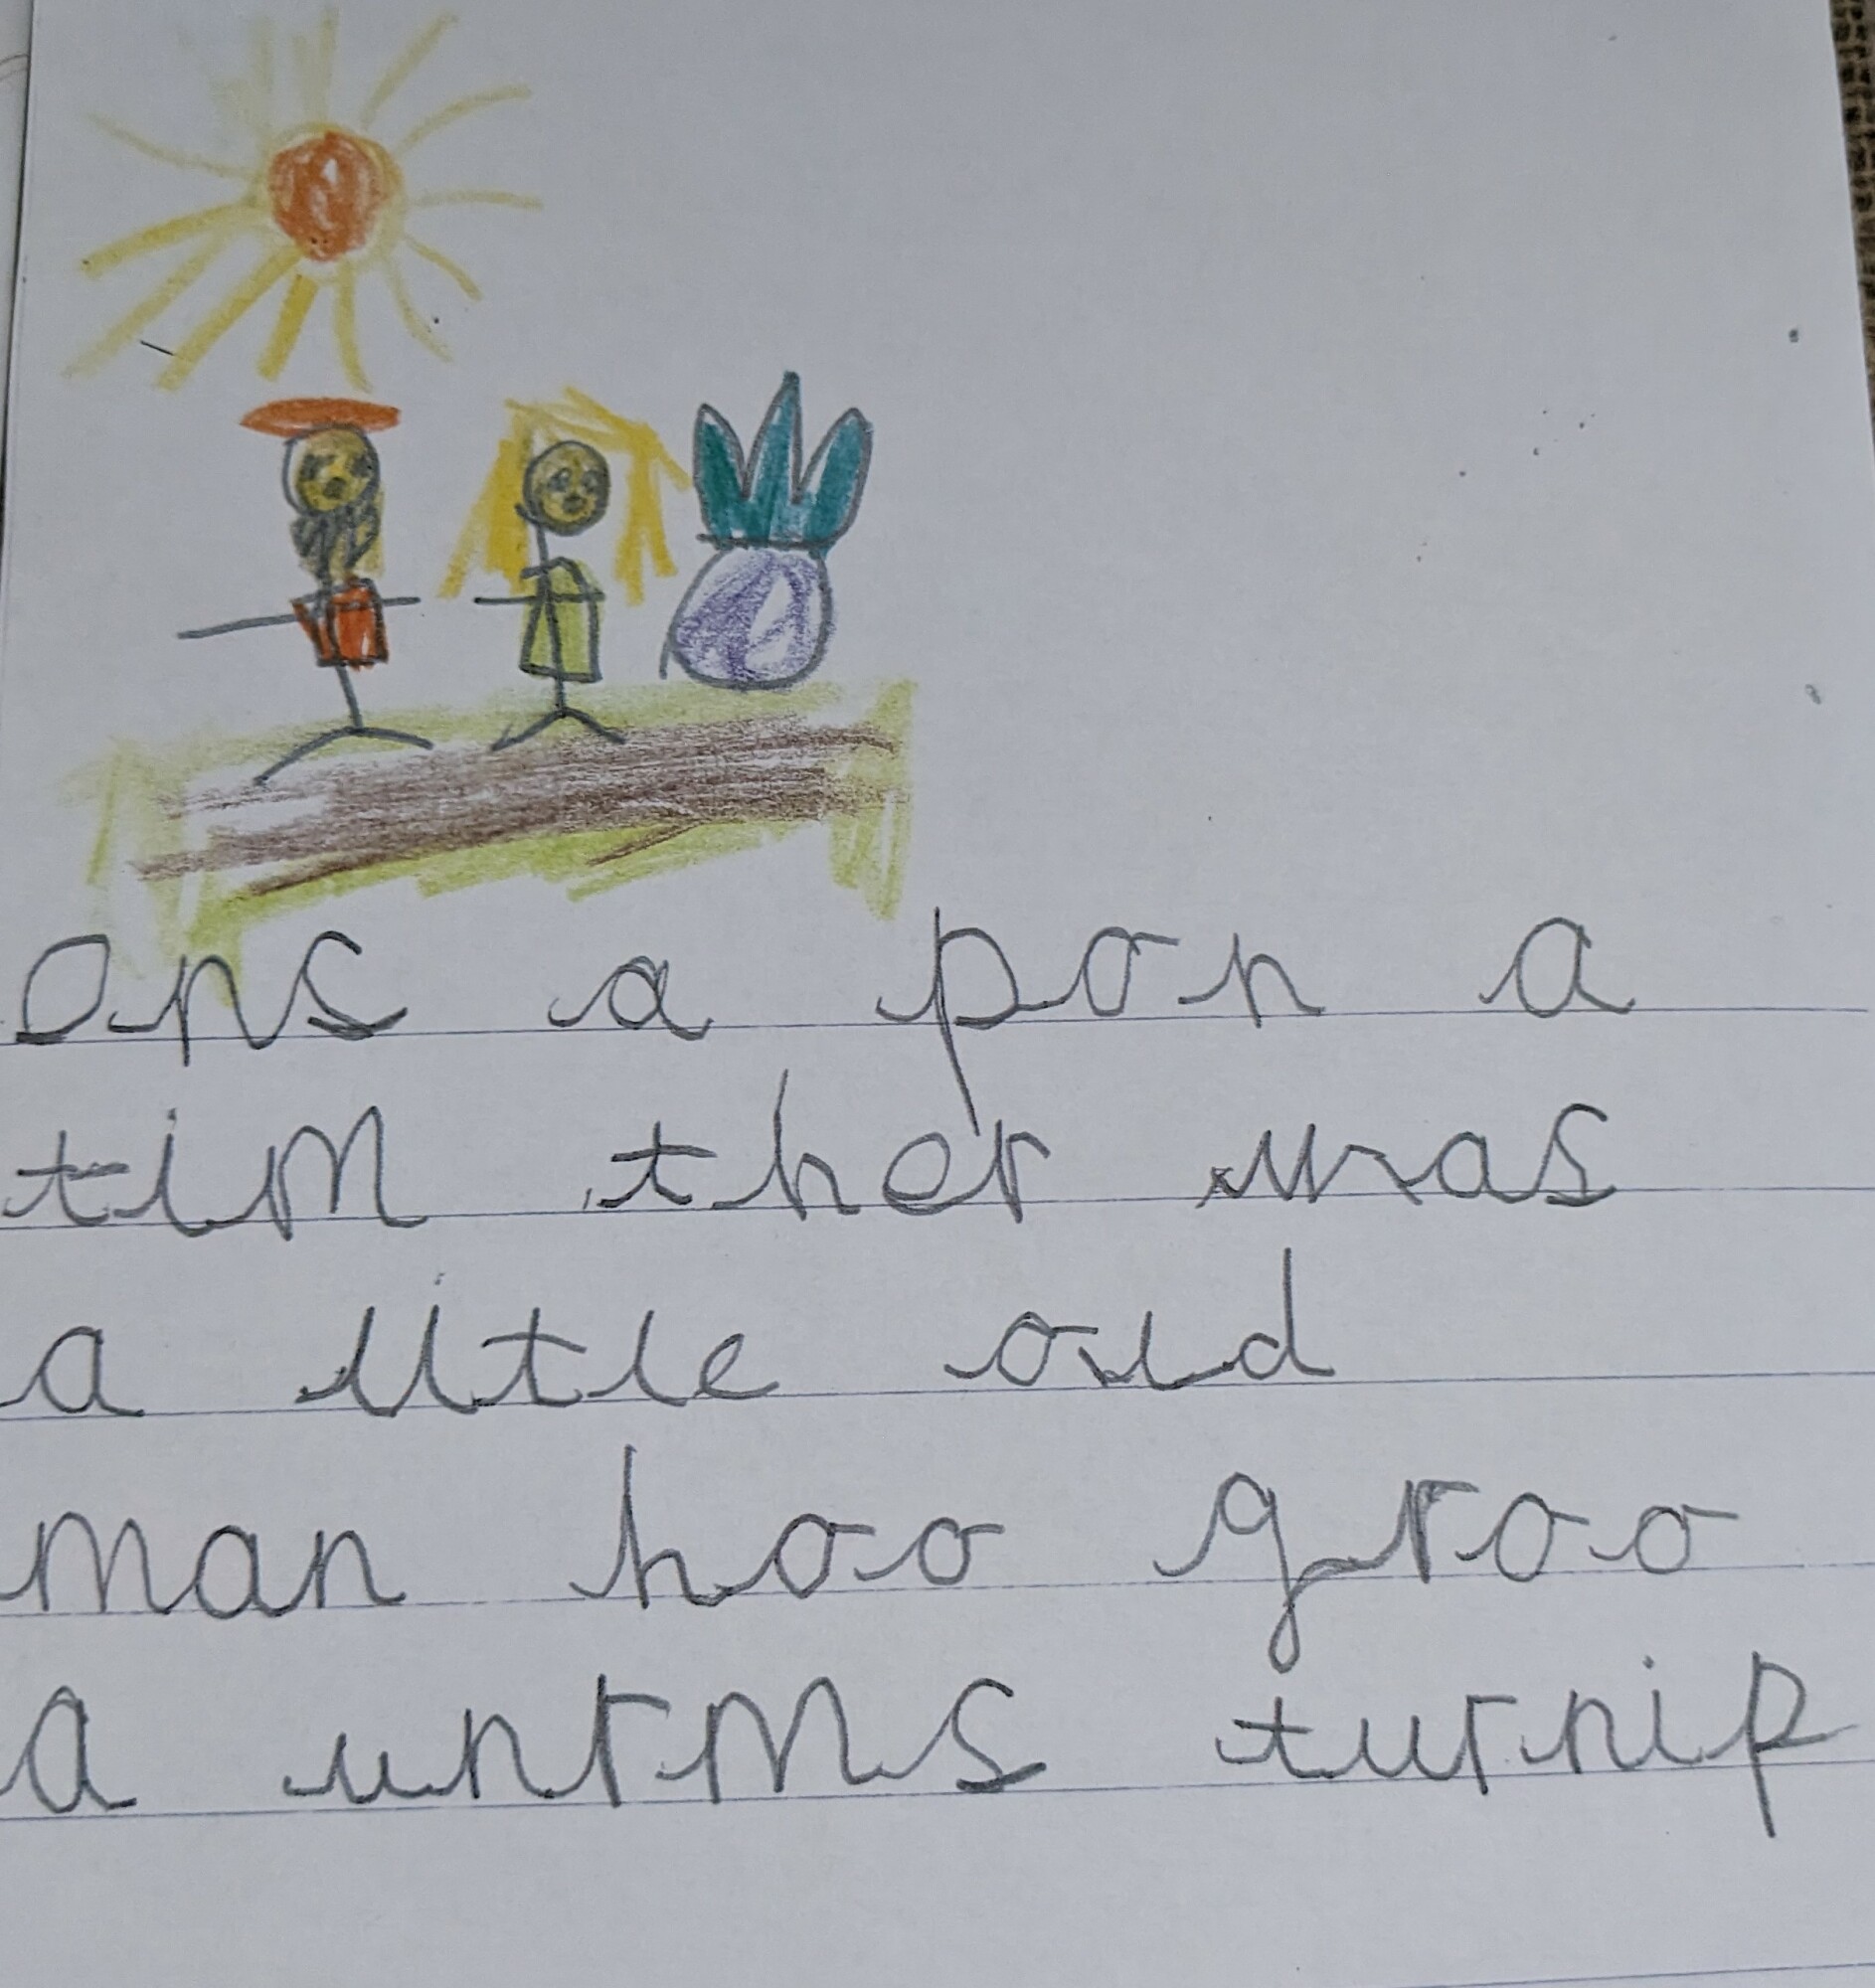 Ons a pon a
tim ther was
a litle old
man hoo groo
a unrms turnip